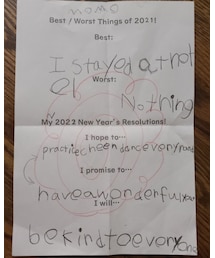 momo
Best / Worst Things of 2021!
Best:
I stayed at hot
el
Worst:
Nothing
My 2022 New Year's Resolutions!
I hope to...
practice heen dance every
I promise to...
have a wonderful year
I will...
be kind to everyone